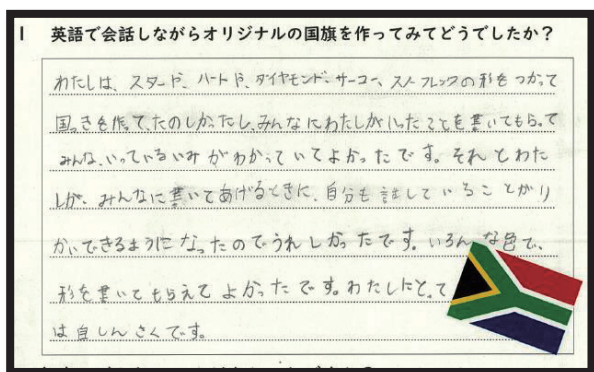 1 英語で会話しながらオリジナルの国旗を作ってみてどうでしたか？
わたしは、スタードや、ハートや、ダイヤモンド、サーコー、スノーフレックの形をつかって
国っきを作って、たのしかったし、みんなにわたしがいったことを書いてもらって
みんな、いっているいみがわかっていてよかったです。それとわた
しが、みんなに書いてあげるときに、自分も話していることがり
かいできるようになったのでうれしかったです。いろんな色で、
形を書いてもらえてよかったです。わたしにとって
は自しんさくです。